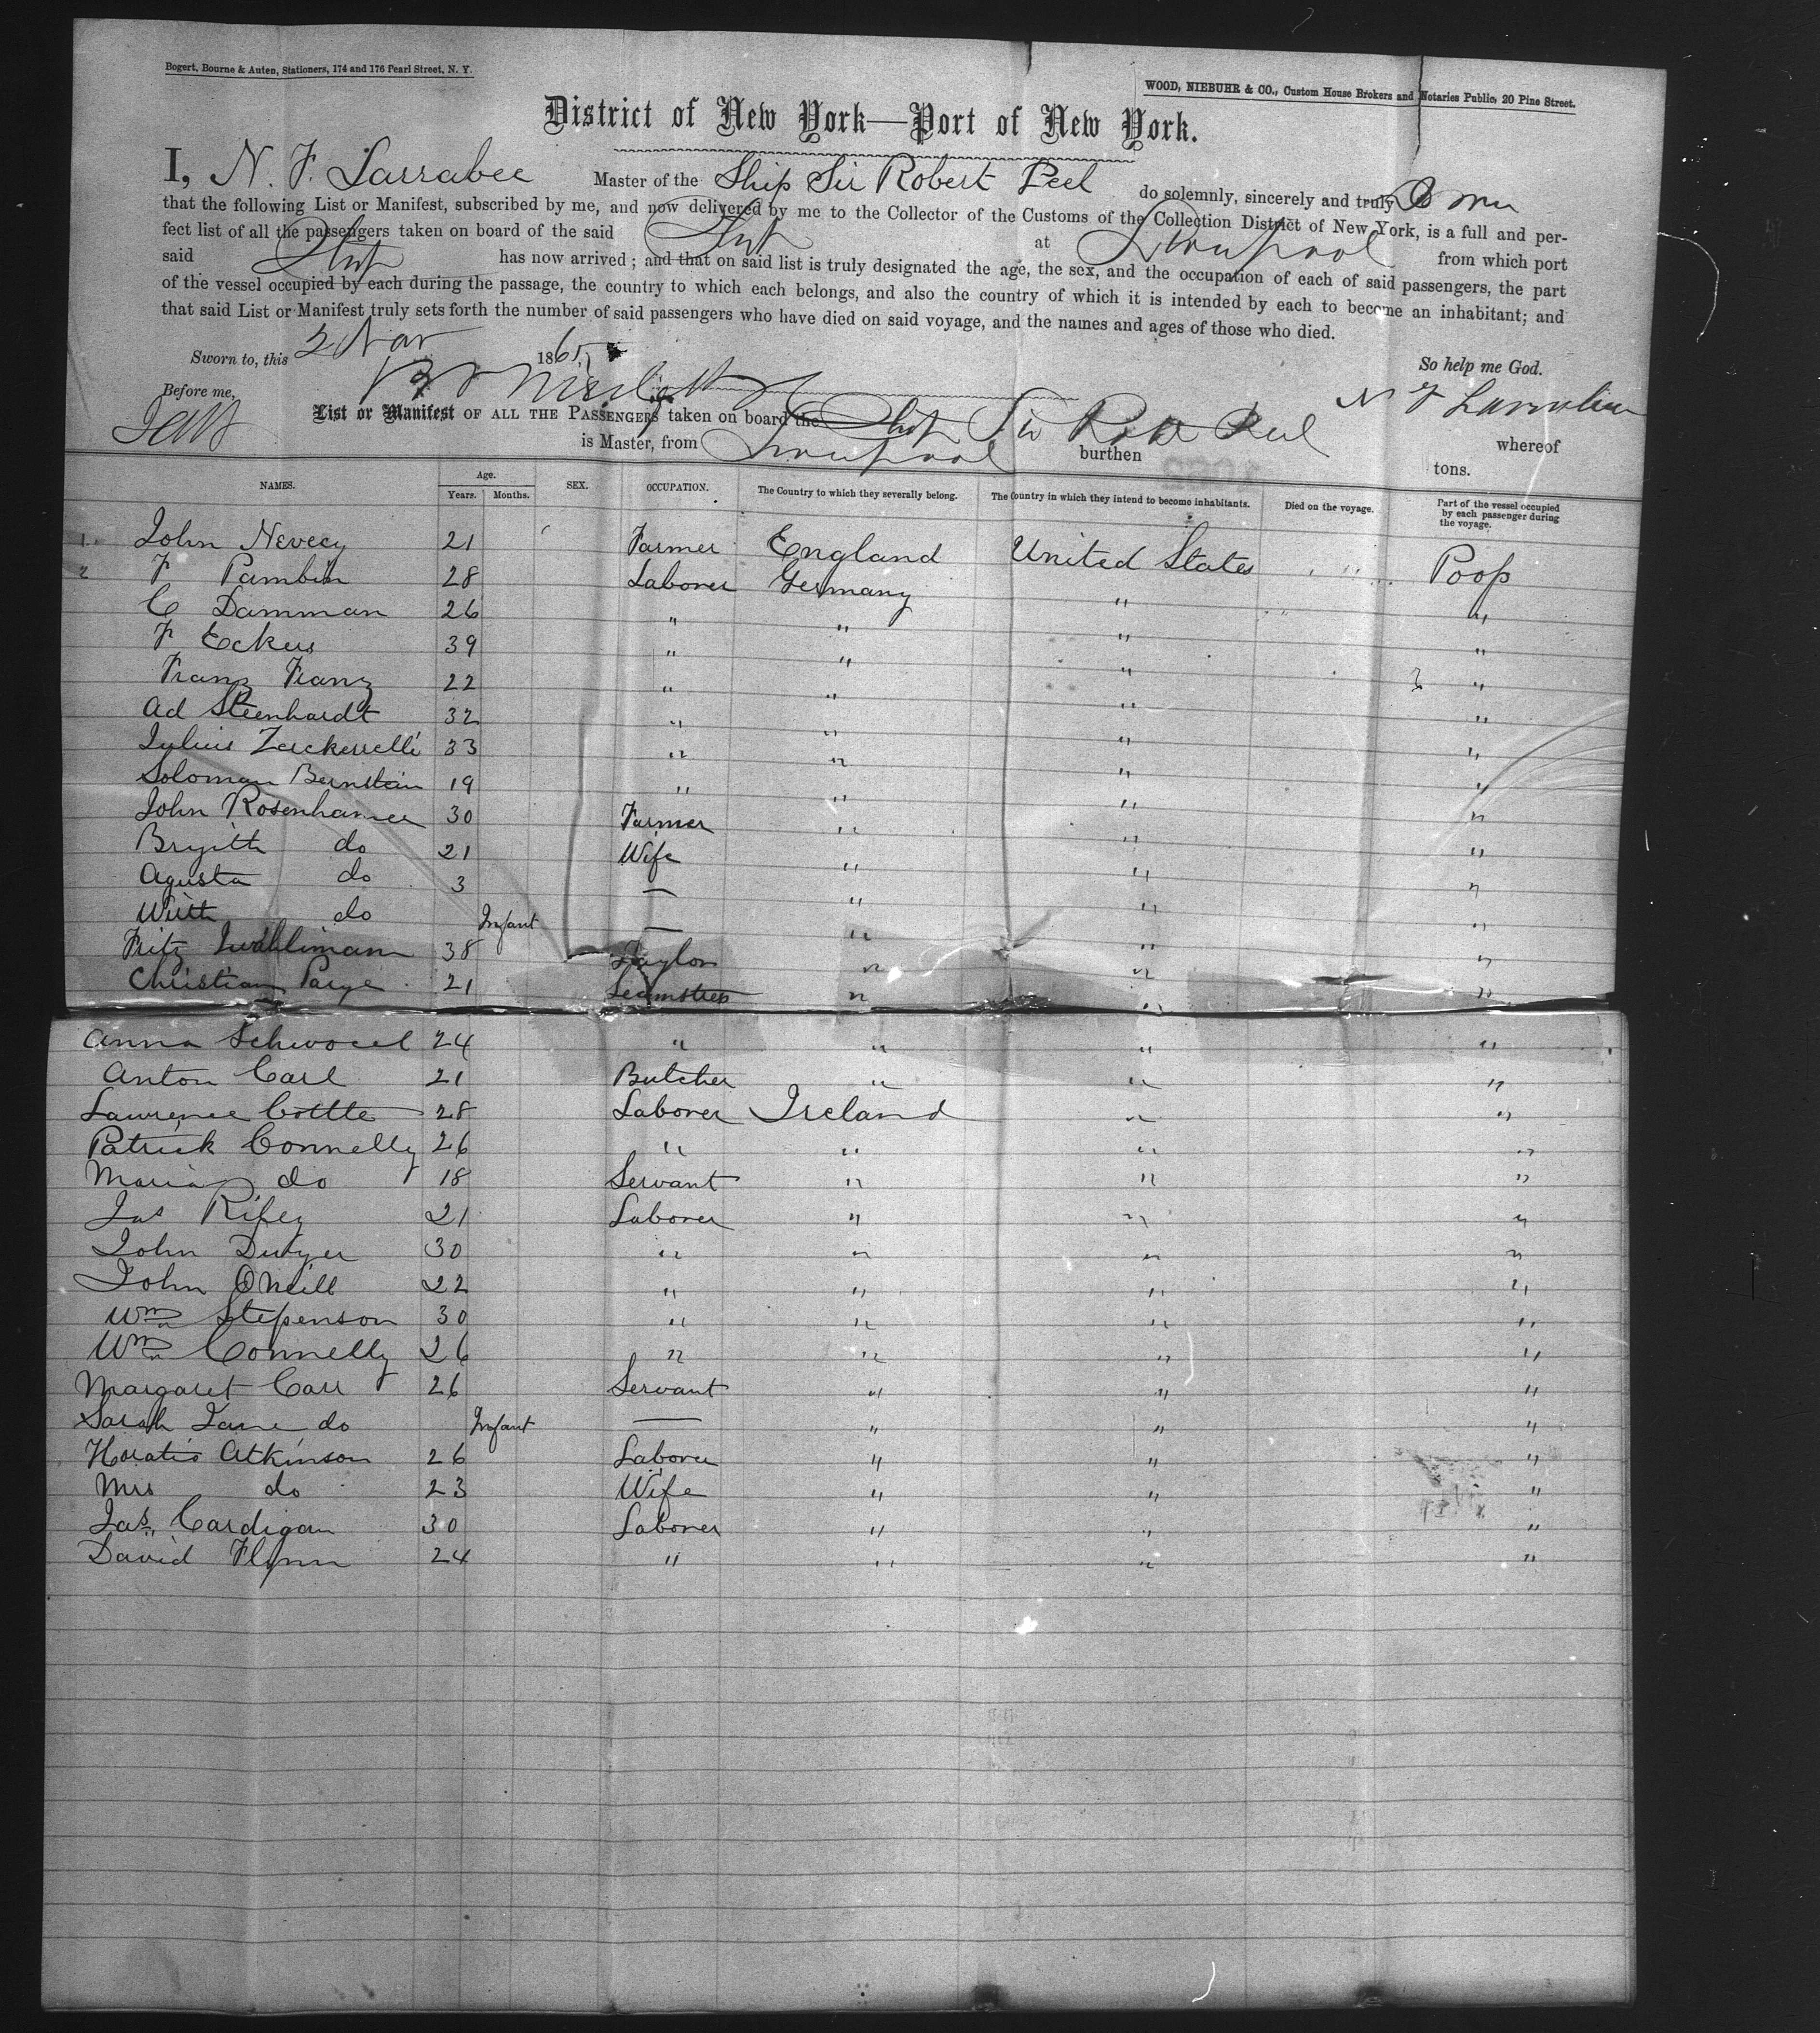 Bogert, Bourne & Auten, Stationers, 174 and 176 Pearl Street, N. Y.
WOOD, NIEBUHR & CO., Custom House Brokers and Notaries Public, 20 Pine Street.
District of New York—Port of New York.
I, N. F. Larrabee Master of the Ship Sir Robert Peel do solemnly, sincerely and truly
that the following List or Manifest, subscribed by me, and now delivered by me to the Collector of the Customs of the Collection District of New York, is a full and per-
fect list of all the passengers taken on board of the said Ship at Liverpool from which port
said Ship has now arrived; and that on said list is truly designated the age, the sex, and the occupation of each of said passengers, the part
of the vessel occupied by each during the passage, the country to which each belongs, and also the country of which it is intended by each to become an inhabitant; and
that said List or Manifest truly sets forth the number of said passengers who have died on said voyage, and the names and ages of those who died.
Sworn to, this 2 Nov 1865 So help me God.
Before me, N F Larrabee
List or Manifest OF ALL THE PASSENGERS taken on board the Ship Sir Robt Peel whereof
is Master, from Liverpool burthen tons.
NAMES. Age. Years. Months. SEX. OCCUPATION. The Country to which they severally belong. The Country in which they intend to become inhabitants. Died on the voyage. Part of the vessel occupied by each passenger during the voyage.
1 John Nevecy 21 Farmer England United States Poop
2 F Pambin 28 Laborer Germany " "
C Damman 26 " " " "
F Eckus 39 " " " "
Franz Franz 22 " " " "
Ad Steenhardt 32 " " " "
Julius 33 " " " "
Soloman Bernstein 19 " " " "
John Rosenhamer 30 Farmer " " "
Brgitte do 21 Wife " " "
Agusta do 3 — " " "
do Infant — " " "
Fritz 38 Taylor " " "
Christian Parge 21 Seamstress " " "
Anna Schwocel 24 " " " "
Anton Carl 21 Butcher " " "
Lawrence Cottle 28 Laborer Ireland " "
Patrick Connelly 26 " " " "
Maria do 18 Servant " " "
Jas Rifey 21 Laborer " " "
John Dwyer 30 " " " "
John ONeill 22 " " " "
Wm Stepenson 30 " " " "
Wm Connelly 26 " " " "
Margaret Carr 26 Servant " " "
Sarah Jane do Infant — " " "
Horatio Atkinson 26 Laborer " " "
Mrs do 23 Wife " " "
Jas. Cardigan 30 Laborer " " "
David Flynn 24 " " " "